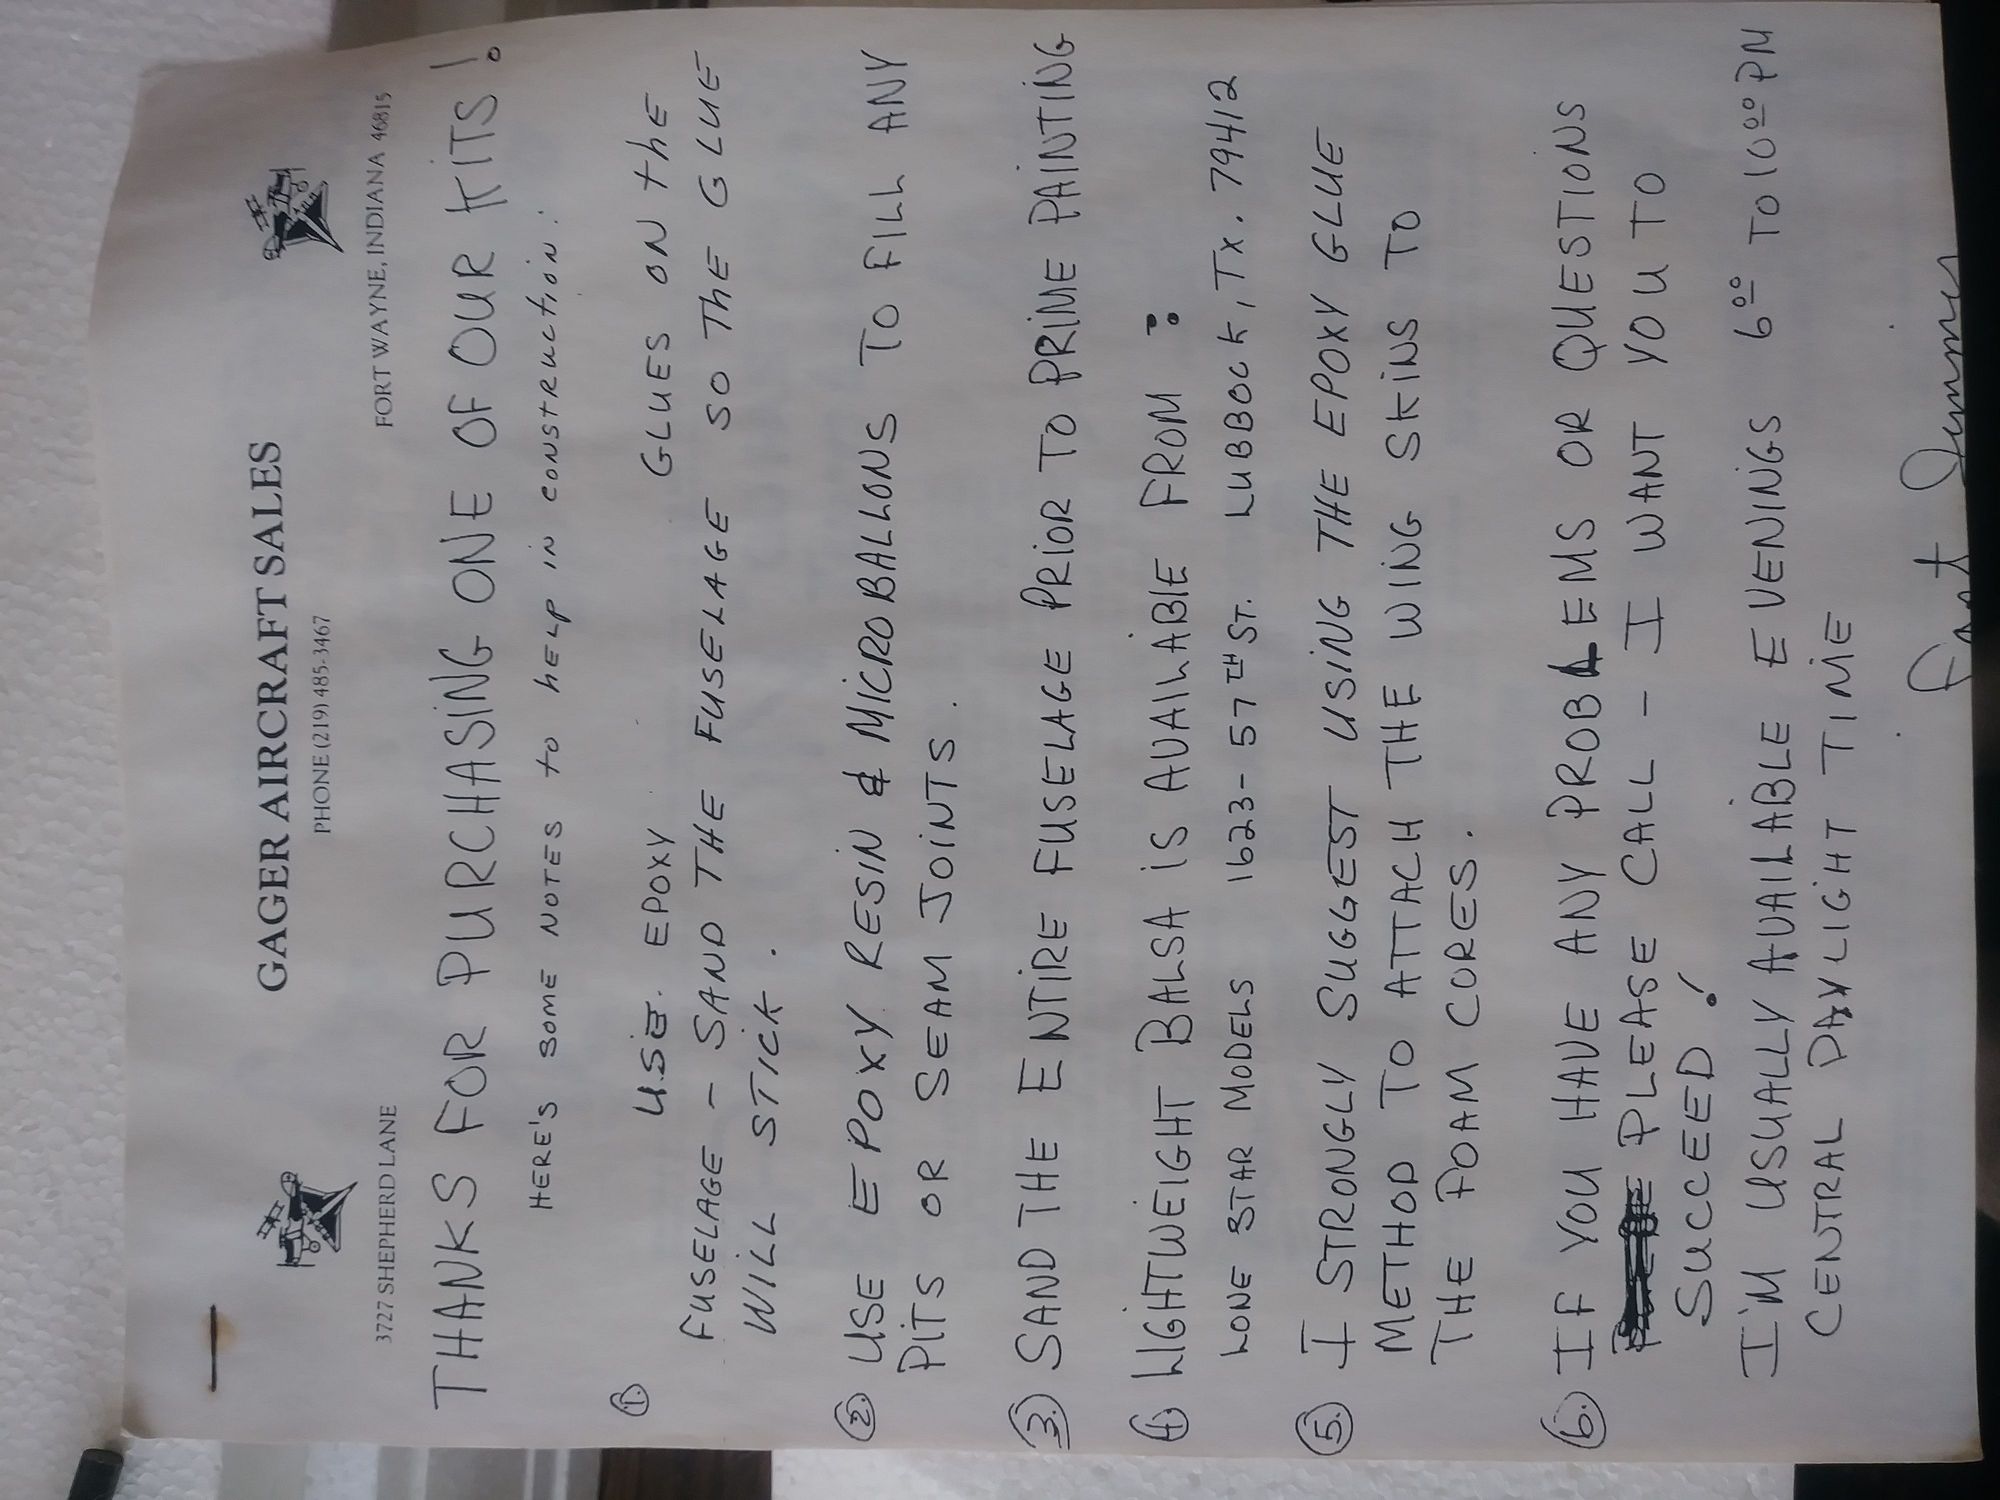 GAGER AIRCRAFT SALES
PHONE (219) 485-3467
3727 SHEPHERD LANE FORT WAYNE, INDIANA 46815
THANKS FOR PURCHASING ONE OF OUR KITS!
HERE'S SOME NOTES to hELP iN CONStRUCtiON:
1. USE EPOXY GLUES ON thE
FUSELAGE - SAND THE FUSELAGE SO THE GLUE
WILL STICK.
2. USE EPOXY RESIN & MICROBALLONS TO FILL ANY
PITS OR SEAM JOINTS.
3. SAND THE ENTIRE FUSELAGE PRIOR TO PRIME PAINTING
4. LIGHTWEIGHT BALSA IS AVAILABLE FROM:
LONE STAR MODELS 1623-57TH ST. LUBBOCK, TX. 79412
5. I STRONGLY SUGGEST USING THE EPOXY GLUE
METHOD TO ATTACH THE WING SKINS TO
THE FOAM CORES.
6. IF YOU HAVE ANY PROBLEMS OR QUESTIONS
PLEASE CALL - I WANT YOU TO
SUCCEED!
I'M USUALLY AVAILABLE EVENINGS 6:00 TO 10:00 PM
CENTRAL DAYLIGHT TIME